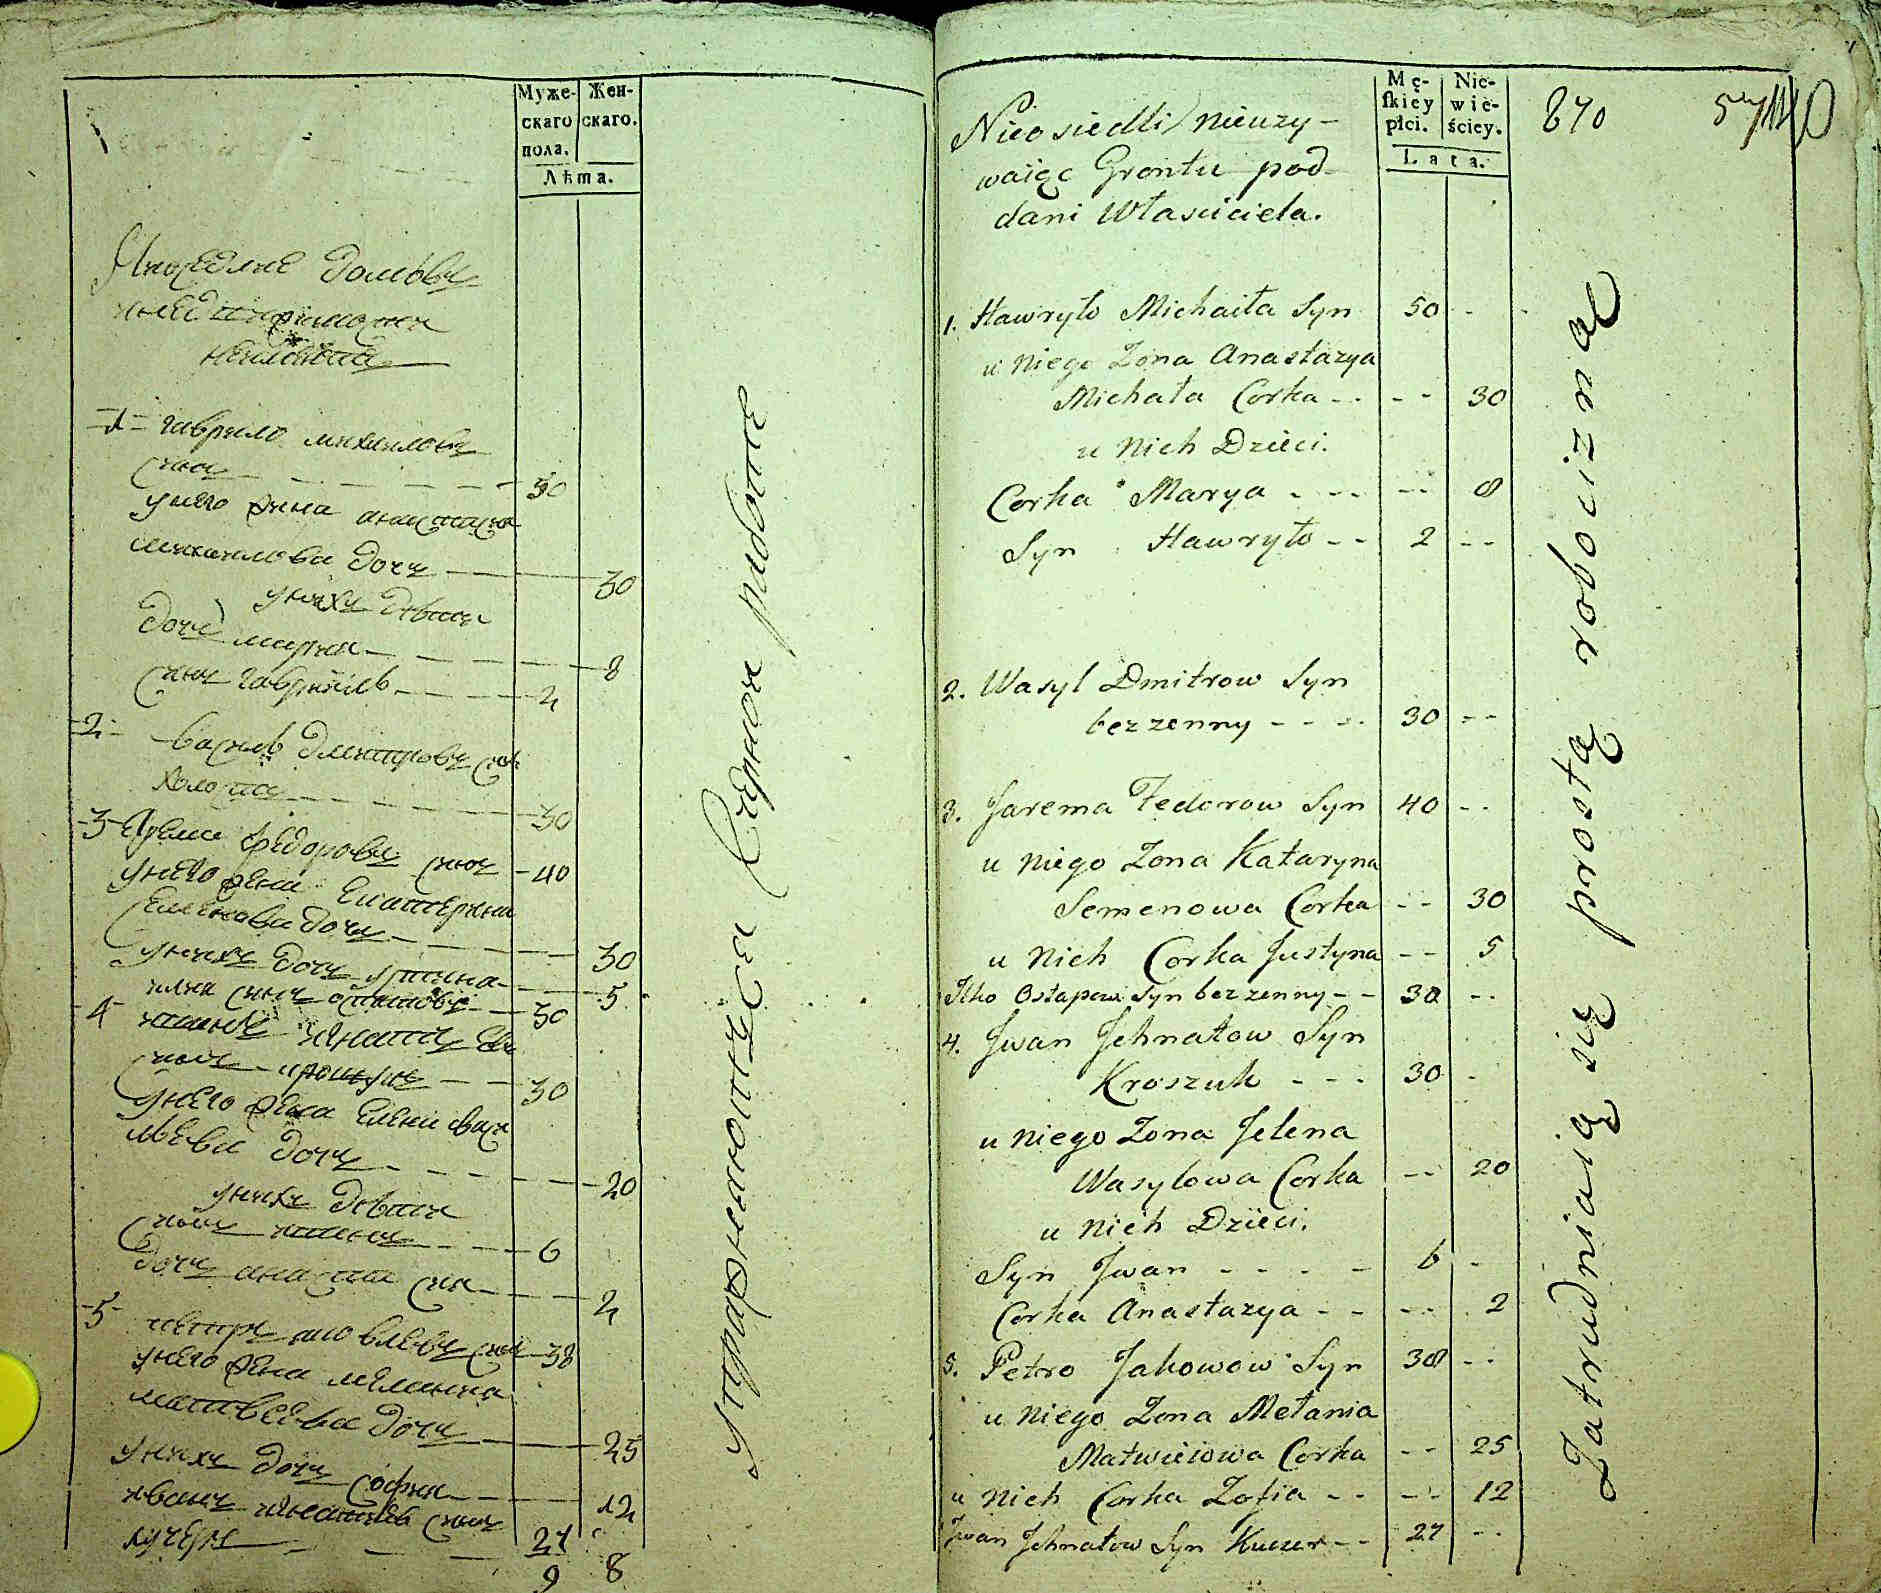 Муже-
скаго
пола.
Жен-
скаго.
Лѣта.
-1- гаврило михайловъ
сынъ 50
у него жена анастасия
михаилова дочь 30
у нихъ дѣти
дочь мария 8
сынъ гавриилъ 2
-2- василь дмитровъ сынъ
холостъ 30
-3- Ярема федоровъ сынъ 40
у него жена Екатерина
Семенова дочь 30
у нихъ дочь устина 5
илия сынъ остаповъ 30
-4- иванъ игнатовъ
сынъ крошукъ 30
у него жена Елена васи
льева дочь 20
у нихъ дѣти
сынъ иванъ 6
дочь анастасия 2
-5- петръ яковлевъ сынъ 38
у него жена мелания
матвеева дочь 25
у нихъ дочь софия 12
иванъ игнатовъ сынъ
кучеръ 27
9 8
упражняются Сельской работою
Mę-
skiey
płci.
Nie-
wie-
ściey.
Lata.
870
Nieosiedli nieuzy-
waiąc Grontu pod-
dani Własciciela.
1. Hawryło Michaiła Syn 50 --
u niego Zona Anastazya
Michała Corka -- -- 30
u nich Dzieci.
Corka Marya --- -- 8
Syn Hawryło -- 2 --
2. Wasyl Dmitrow Syn
bezzenny ---- 30 --
3. Jarema Fedorow Syn 40 --
u niego Zona Kataryna
Semenowa Corka -- 30
u nich Corka Justyna -- 5
Ilko Ostapow Syn bezzenny -- 30 --
4. Jwan Jehnatow Syn
Kroszuk --- 30 -
u niego Zona Jelena
Wasylowa Corka -- 20
u nich Dzieci.
Syn Jwan ---- 6 -
Corka Anastazya -- -- 2
5. Petro Jakowow Syn 38 --
u niego Zona Metania
Matwieiowa Corka -- 25
u nich Corka Zofia -- -- 12
Jwan Jehnatow Syn Kuczer -- 27 --
Zatrudniaią się prostą robocizną